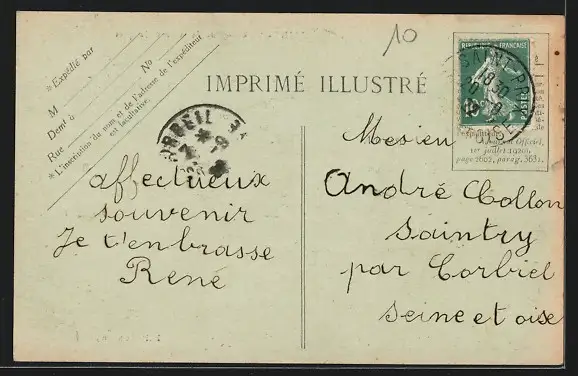 10
* Expédié par
M
No
Demt à
Rue
* L'inscription du nom et de l'adresse de l'expéditeur
est facultative.
IMPRIMÉ ILLUSTRÉ
REPUBLIQUE FRANÇAISE
POSTES
SAINT-PR
18 30
CORBEIL
Officiel,
1er juillet 1920,
page 2602, parag. 363).
affectueux
souvenir
Je t'enbrasse
René
Mesieu
André Collon
Saintry
par Corbiel
Seine et oise